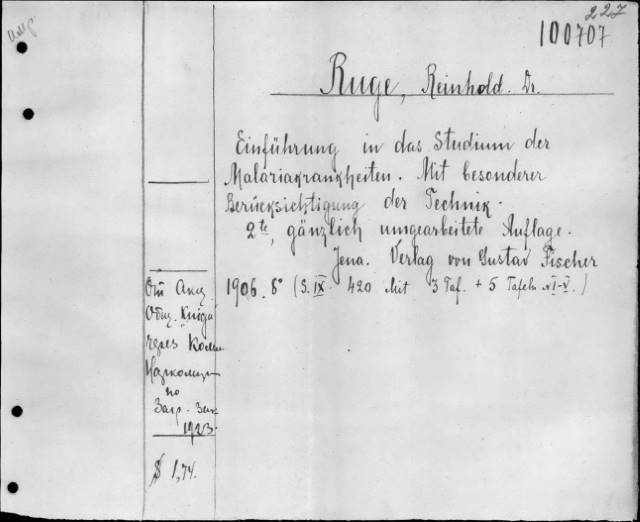 227
100707
Ruge, Reinhold. Dr.
Einführung in das Studium der
Malariakrankheiten. Mit besonderer
Berücksichtigung der Technik.
2te, gänzlich umgearbeitete Auflage.
Jena. Verlag von Gustav Fischer
1906. 8° (S. IX. 420 Mit 3 Taf. + 5 Tafeln NI-V.)
От Акц
Общ. "Книга"
через Колм
по
Загр. Зак
1923.
$ 1,74.